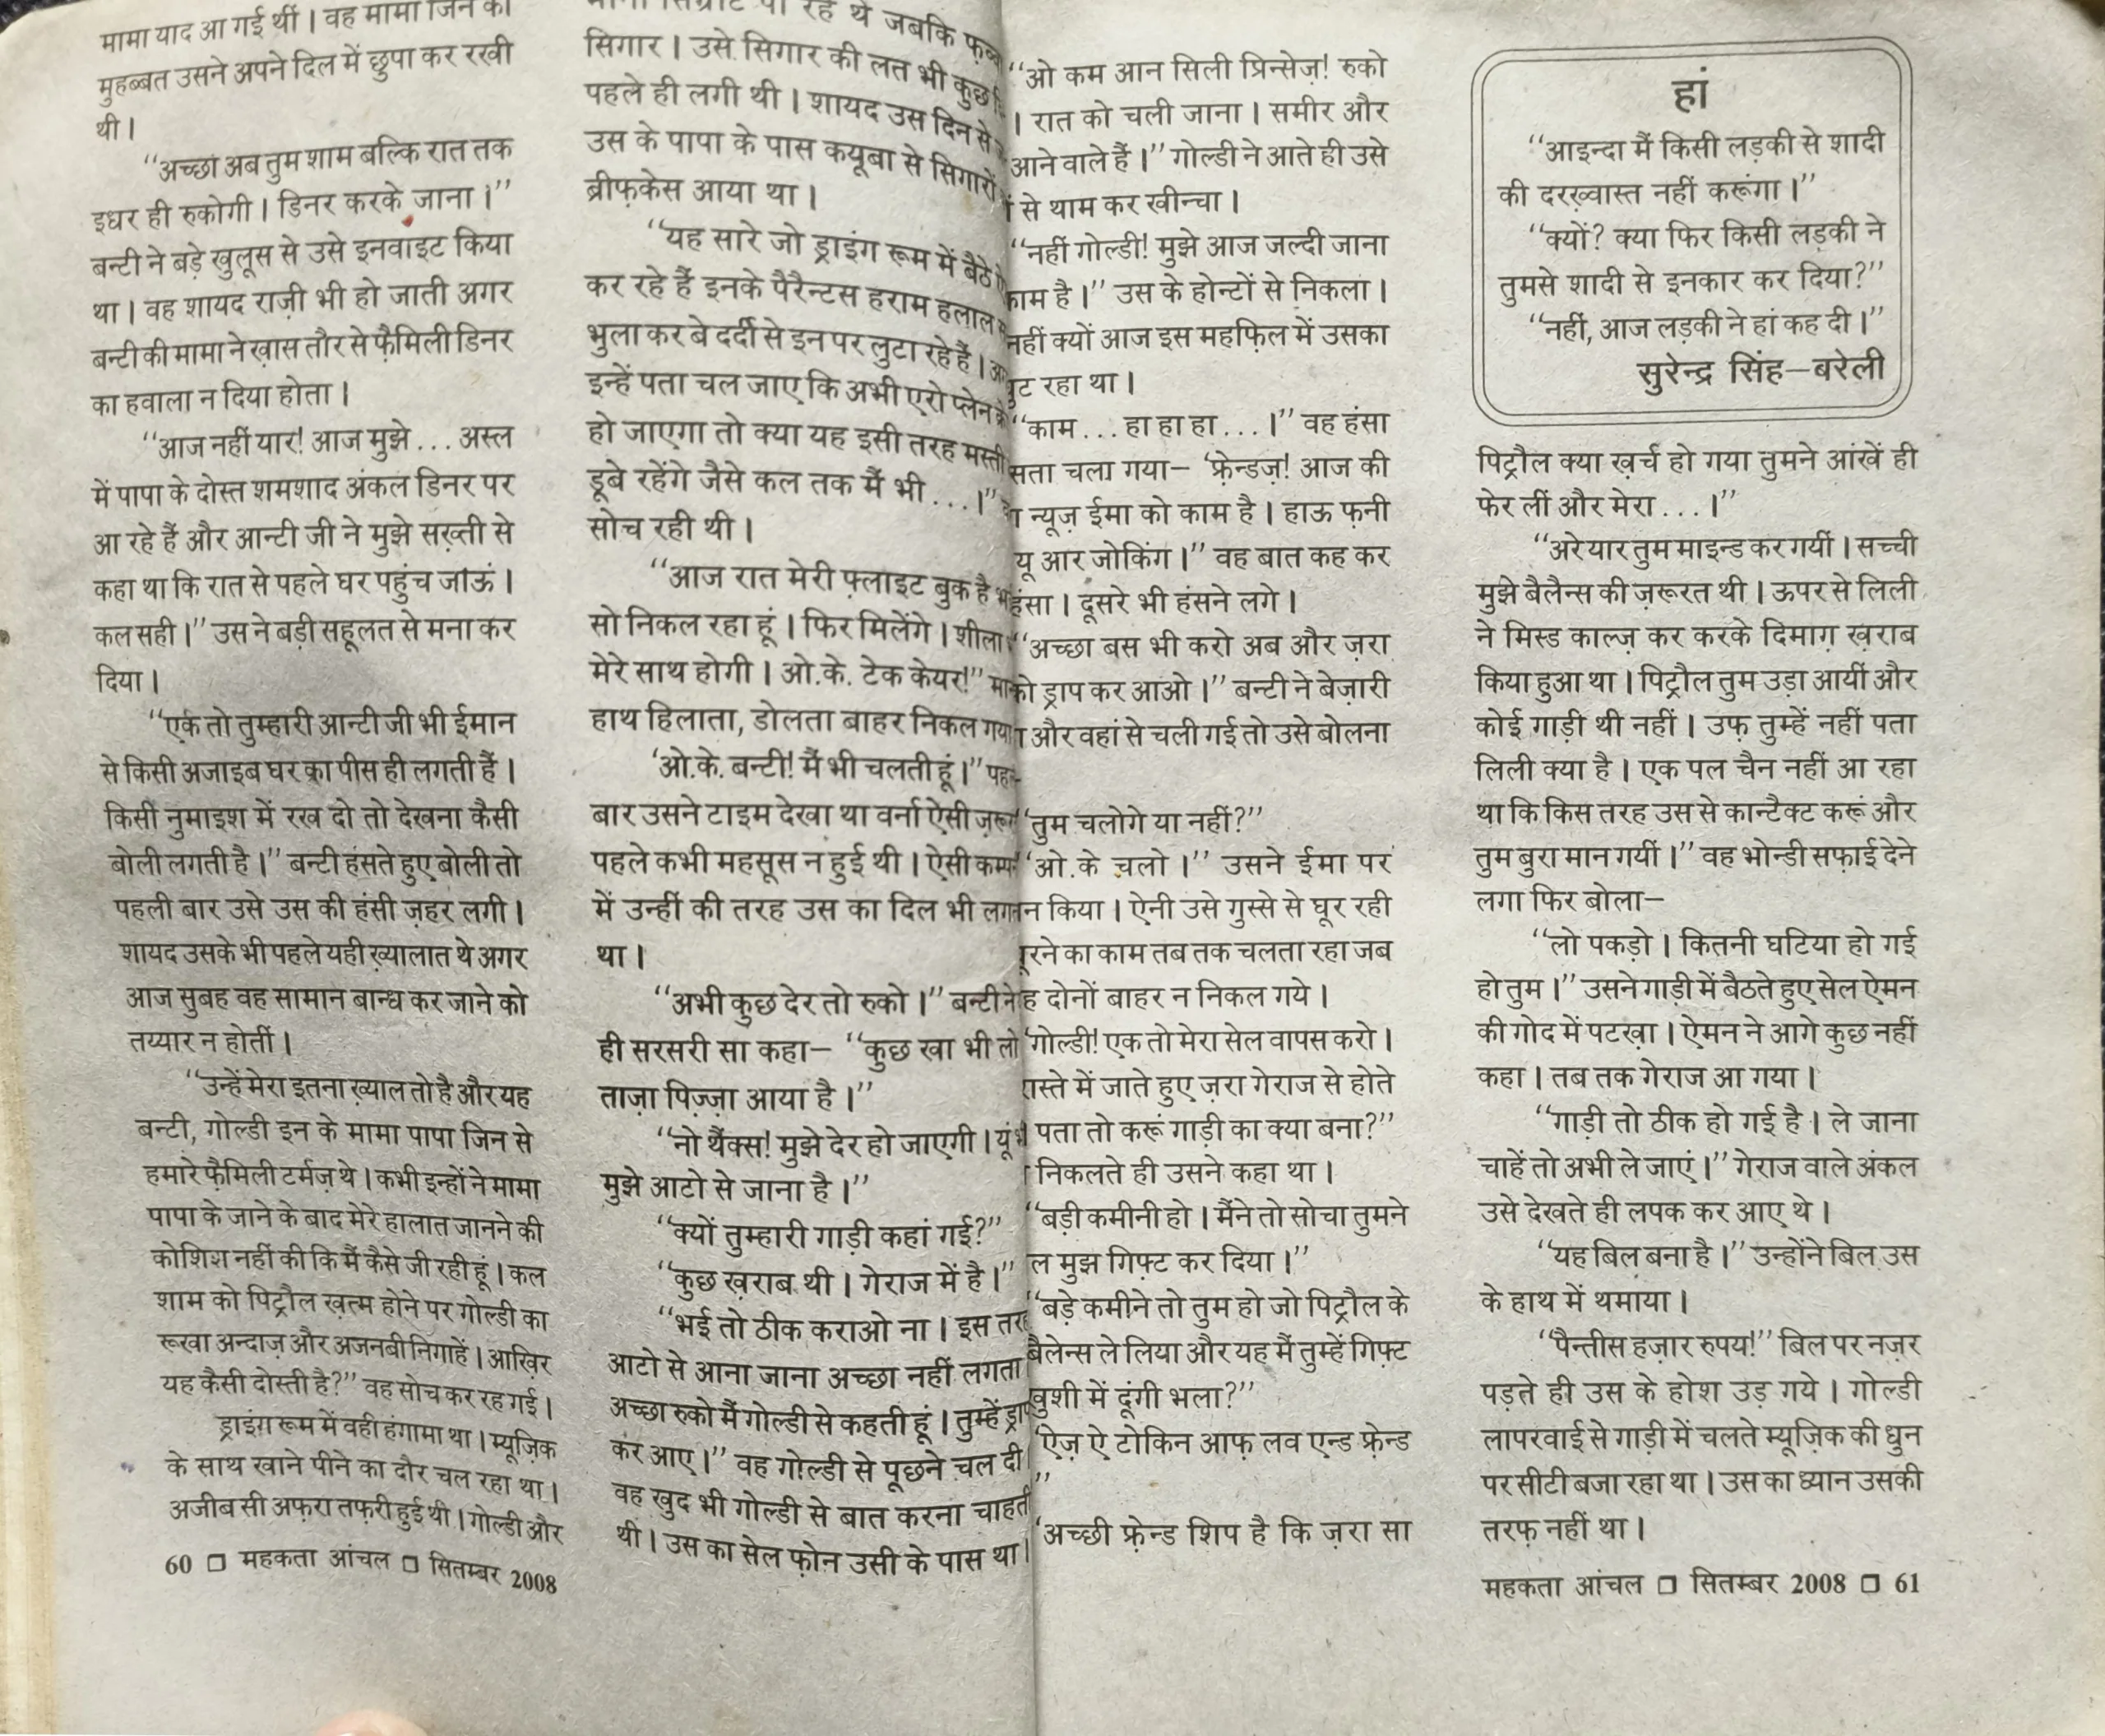 मामा याद आ गई थीं। वह मामा जिन की
मुहब्बत उसने अपने दिल में छुपा कर रखी
थी।
“अच्छा अब तुम शाम बल्कि रात तक
इधर ही रुकोगी। डिनर करके जाना।”
बन्टी ने बड़े खुलूस से उसे इनवाइट किया
था। वह शायद राज़ी भी हो जाती अगर
बन्टी की मामा ने ख़ास तौर से फ़ैमिली डिनर
का हवाला न दिया होता।
“आज नहीं यार! आज मुझे... अस्ल
में पापा के दोस्त शमशाद अंकल डिनर पर
आ रहे हैं और आन्टी जी ने मुझे सख़्ती से
कहा था कि रात से पहले घर पहुंच जाऊं।
कल सही।” उस ने बड़ी सहूलत से मना कर
दिया।
“एक तो तुम्हारी आन्टी जी भी ईमान
से किसी अजाइब घर का पीस ही लगती हैं।
किसी नुमाइश में रख दो तो देखना कैसी
बोली लगती है।” बन्टी हंसते हुए बोली तो
पहली बार उसे उस की हंसी ज़हर लगी।
शायद उसके भी पहले यही ख़्यालात थे अगर
आज सुबह वह सामान बान्ध कर जाने को
तय्यार न होतीं।
“उन्हें मेरा इतना ख़्याल तो है और यह
बन्टी, गोल्डी इन के मामा पापा जिन से
हमारे फ़ैमिली टर्मज़ थे। कभी इन्होंने मामा
पापा के जाने के बाद मेरे हालात जानने की
कोशिश नहीं की कि मैं कैसे जी रही हूं। कल
शाम को पिट्रौल ख़त्म होने पर गोल्डी का
रूखा अन्दाज़ और अजनबी निगाहें। आख़िर
यह कैसी दोस्ती है?” वह सोच कर रह गई।
ड्राइंग रूम में वही हंगामा था। म्यूज़िक
के साथ खाने पीने का दौर चल रहा था।
अजीब सी अफ़रा तफ़री हुई थी। गोल्डी और
60 □ महकता आंचल □ सितम्बर 2008
रहे थे जबकि
सिगार। उसे सिगार की लत भी कुछ
पहले ही लगी थी। शायद उस दिन से
उस के पापा के पास कयूबा से सिगारों
ब्रीफ़केस आया था।
“यह सारे जो ड्राइंग रूम में बैठे
कर रहे हैं इनके पैरैन्टस हराम हलाल
भुला कर बे दर्दी से इन पर लुटा रहे हैं।
इन्हें पता चल जाए कि अभी एरो प्लेन
हो जाएगा तो क्या यह इसी तरह मस्ती
डूबे रहेंगे जैसे कल तक मैं भी...।”
सोच रही थी।
“आज रात मेरी फ़्लाइट बुक है
सो निकल रहा हूं। फिर मिलेंगे। शीला
मेरे साथ होगी। ओ.के. टेक केयर!”
हाथ हिलाता, डोलता बाहर निकल गया
‘ओ.के. बन्टी! मैं भी चलती हूं।”
बार उसने टाइम देखा था वर्ना ऐसी
पहले कभी महसूस न हुई थी। ऐसी
में उन्हीं की तरह उस का दिल भी
था।
“अभी कुछ देर तो रुको।” बन्टी ने
ही सरसरी सा कहा– “कुछ खा भी लो
ताज़ा पिज़्ज़ा आया है।”
“नो थैंक्स! मुझे देर हो जाएगी। यूं
मुझे आटो से जाना है।”
“क्यों तुम्हारी गाड़ी कहां गई?”
“कुछ ख़राब थी। गेराज में है।”
“भई तो ठीक कराओ ना। इस तरह
आटो से आना जाना अच्छा नहीं लगता
अच्छा रुको मैं गोल्डी से कहती हूं। तुम्हें
कर आए।” वह गोल्डी से पूछने चल दी
वह खुद भी गोल्डी से बात करना चाहती
थी। उस का सेल फ़ोन उसी के पास था।
“ओ कम आन सिली प्रिन्सेज़! रुको
। रात को चली जाना। समीर और
आने वाले हैं।” गोल्डी ने आते ही उसे
से थाम कर खीन्चा।
“नहीं गोल्डी! मुझे आज जल्दी जाना
काम है।” उस के होन्टों से निकला।
नहीं क्यों आज इस महफ़िल में उसका
रहा था।
“काम... हा हा हा...।” वह हंसा
चला गया– ‘फ़्रेन्डज़! आज की
न्यूज़ ईमा को काम है। हाऊ फ़नी
यू आर जोकिंग।” वह बात कह कर
हंसा। दूसरे भी हंसने लगे।
“अच्छा बस भी करो अब और ज़रा
को ड्राप कर आओ।” बन्टी ने बेज़ारी
और वहां से चली गई तो उसे बोलना
‘तुम चलोगे या नहीं?”
‘ओ.के चलो।” उसने ईमा पर
किया। ऐनी उसे गुस्से से घूर रही
का काम तब तक चलता रहा जब
दोनों बाहर न निकल गये।
‘गोल्डी! एक तो मेरा सेल वापस करो।
रास्ते में जाते हुए ज़रा गेराज से होते
पता तो करूं गाड़ी का क्या बना?”
निकलते ही उसने कहा था।
“बड़ी कमीनी हो। मैंने तो सोचा तुमने
मुझ गिफ़्ट कर दिया।”
“बड़े कमीने तो तुम हो जो पिट्रौल के
बैलेन्स ले लिया और यह मैं तुम्हें गिफ़्ट
खुशी में दूंगी भला?”
‘ऐज़ ऐ टोकिन आफ़ लव एन्ड फ़्रेन्ड
”
‘अच्छी फ़्रेन्ड शिप है कि ज़रा सा
हां
“आइन्दा मैं किसी लड़की से शादी
की दरख़्वास्त नहीं करूंगा।”
“क्यों? क्या फिर किसी लड़की ने
तुमसे शादी से इनकार कर दिया?”
“नहीं, आज लड़की ने हां कह दी।”
सुरेन्द्र सिंह–बरेली
पिट्रौल क्या ख़र्च हो गया तुमने आंखें ही
फेर लीं और मेरा...।”
“अरे यार तुम माइन्ड कर गयीं। सच्ची
मुझे बैलैन्स की ज़रूरत थी। ऊपर से लिली
ने मिस्ड काल्ज़ कर करके दिमाग़ ख़राब
किया हुआ था। पिट्रौल तुम उड़ा आयीं और
कोई गाड़ी थी नहीं। उफ़ तुम्हें नहीं पता
लिली क्या है। एक पल चैन नहीं आ रहा
था कि किस तरह उस से कान्टैक्ट करूं और
तुम बुरा मान गयीं।” वह भोन्डी सफ़ाई देने
लगा फिर बोला–
“लो पकड़ो। कितनी घटिया हो गई
हो तुम।” उसने गाड़ी में बैठते हुए सेल ऐमन
की गोद में पटखा। ऐमन ने आगे कुछ नहीं
कहा। तब तक गेराज आ गया।
“गाड़ी तो ठीक हो गई है। ले जाना
चाहें तो अभी ले जाएं।” गेराज वाले अंकल
उसे देखते ही लपक कर आए थे।
“यह बिल बना है।” उन्होंने बिल उस
के हाथ में थमाया।
“पैन्तीस हज़ार रुपय!” बिल पर नज़र
पड़ते ही उस के होश उड़ गये। गोल्डी
लापरवाई से गाड़ी में चलते म्यूज़िक की धुन
पर सीटी बजा रहा था। उस का ध्यान उसकी
तरफ़ नहीं था।
महकता आंचल □ सितम्बर 2008 □ 61